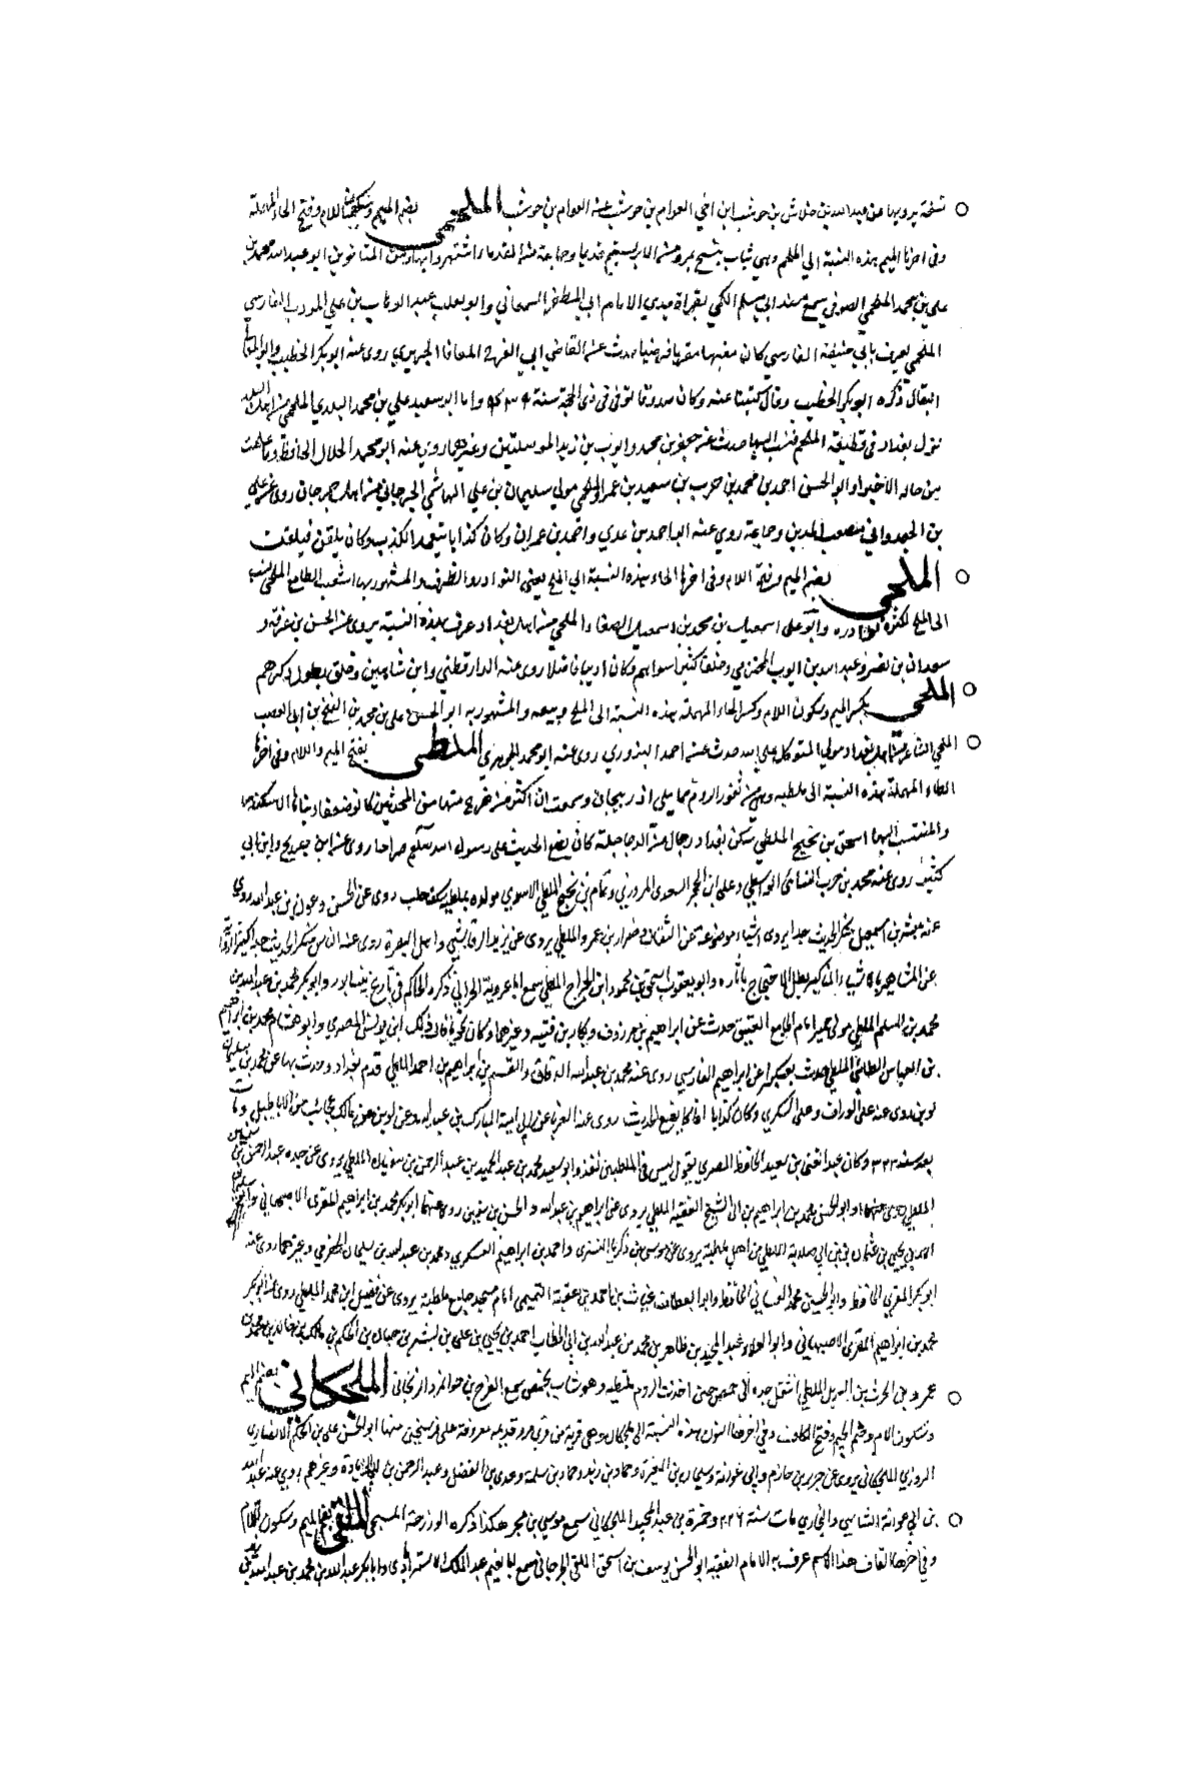 نسخة يرويها عن عبد الله بن خراش بن حوشب ابن اخي العوام بن حوشب عنه العوام بن حوشب الملحمي بضم الميم وسكون اللام وفتح الحاء المهملة
وفى اخرها الميم هذه النسبة الي الملحم وهي ثياب تنسج بمرو من الابريسم قديما وجماعة من القدماء اشتهروا بها ومن المتاخرين ابو عبد الله محمد بن
على بن محمد الملحمي الصوفي سمع مسند ابي مسلم الكجي بقراة جدي الامام ابي المظفر السمعاني وابو تغلب عبد الوهاب بن علي المودب الفارسي
الملحمي يعرف بابي حنيفة الفارسي كان فقيها مقريا فرضيا حدث عن القاضي ابي الفرج المعافا الجريري روى عنه ابو بكر الخطيب وابو
البقال ذكره ابو بكر الخطيب وقال كتبنا عنه وكان صدوقا توفى فى ذى الحجة سنة واما ابو سعيد علي بن محمد البلدي الملحمي من اهل
نزل بغداد فى قطيعة الملحم فنسب اليها حدث عن جعفر بن محمد وايوب بن زيد الموصليين وغيرهما روى عنه ابو محمد الخلال الحافظ وما علمت
من حاله الا خيرا وابو الحسن احمد بن محمد بن حرب بن سعيد بن عمرو الملحمي مولي سليمان بن علي الهاشمي الجرجاني من اهل جرجان روى عن علي
بن الجعد وابي مصعب المديني وجماعة روي عنه ابو احمد بن عدي واحمد بن عمران وكان كذابا يتعمد الكذب وكان يلقن فيتلقن
الملحي بضم الميم وفتح اللام وفى اخرها الحاء هذه النسبة الي الملح يعني النوادر والظرف والمشهور بها اشعب الطامع الملحي نسب
الى الملح لكثرة نوادره وابو على اسمعيل بن محمد بن اسمعيل الصفار الملحي من اهل بغداد وعرف بهذه النسبة يروى عن الحسن بن عرفة و
سعدان بن نصر وعبد الله بن ايوب المخرمي وخلقا كثيرا سواهم وكان اديبا فاضلا روى عنه الدارقطني وابن شاهين وخلق يطول ذكرهم
الملحي بكسر الميم وسكون اللام وكسر الحاء المهملة هذه النسبة الى الملح وبيعه والمشهور به ابو الحسن على بن محمد بن الفتح بن ابي العصب
الملحي الشاعر من اهل بغداد مولي المتوكل على الله حدث عن احمد البزوري روى عنه ابو محمد الجوهري الملطي بفتح الميم واللام وفى اخرها
الطاء المهملة هذه النسبة الى ملطيه وهي من ثغور الروم مما يلى اذربيجان وسمعت ان اكثر من خرج منها من المحدثين كانو ضعفا
والمنتسب اليها اسحق بن نجيح الملطي سكن بغداد رجال من الدجاجلة كان يضع الحديث على رسول الله صلعم صراحا روى عن ابن جريج وابن ابي
كثير روى عنه محمد بن حرب النسائي الواسطي وعلى ابن الحجر السعدى المروزي وتمام بن نجيح الملطي الاسدي مولده بملطية سكن حلب روى عن الحسن وعون بن عبد الله روى
عنه مبشر بن اسمعيل منكر الحديث جدا يروى اشياء موضوعة عن الثقات وضرار بن عمرو الملطي يروى عن يزيد الرقاشي واهل البصرة روى عنه الناس منكر الحديث جدا كثير الرواية
عن المشاهير بالاشياء المناكير بطل الاحتجاج باثاره وابو يعقوب اسحق بن محمود ابن الجراح الملطي سمع ابا عروبة الحراني ذكره الحاكم فى تاريخ نيسابور وابو بكر محمد بن عبد الله بن
محمد بن السلم الملطي مولى حمير امام الجامع العتيق حدث عن ابراهيم بن مرزوق وبكار بن قتيبة وغيرهما وكان نحويا قال ذلك ابن يونس المصري وابو هشام محمد بن ابراهيم
بن العباس الطائي الملطي حدث بعكبرا عن ابراهيم الفارسي روى عنه محمد بن عبد الله الدقاق والقسم بن ابراهيم بن احمد الملطي قدم بغداد وحدث بها عن محمد بن سليمان
لوين روى عنه على الوراق وعلى السكري وكان كذابا افاكا يضع الحديث روى عنه الغرباء عن ابي امية المبارك بن عبد الله وعن لوين عن مالك عجائب من الاباطيل ومات
بعد سنه ٣٢٣ وكان عبد الغني بن سعيد الحافظ المصري يقول ليس في الملطيين ثقة وابو سعيد محمد بن عبد الحميد بن عبد الرحمن بن الملطي يروى عن جده عبد الرحمن بن
الملطي روى عنهما وابو الحسن محمد بن ابراهيم بن الشيخ الفقيه الملطي يروى عن ابراهيم بن عبد الله والحسن بن روى عنهما ابو بكر محمد بن ابراهيم المقري الاصبهاني
احمد بن يحيى بن عثمان بن ابي صلابة الملطي من اهل ملطية يروى عن موسى بن زكريا التستري واحمد بن ابراهيم العسكري ومحمد بن عبد الله بن سليمان الحضرمي وغيرهما روى عنه
ابو بكر المقري الحافظ وابو الحسين محمد الغساني الحافظ وابو العطاف غياث بن احمد بن عقبة التميمي امام مسجد جامع ملطية يروى عن فضيل ابن محمد الملطي روى عنه ابو بكر
محمد بن ابراهيم المقري الاصبهاني وابو العلاء عبد المجيد بن طاهر بن محمد بن عبد الله بن ابي الخطاب احمد بن يحيى بن على بن بشر بن حبان بن الحكم بن مالك بن خالد بن
عمرو بن الحرث بن الملطي انتقل جده الى حمص حين اخذت الروم ملطيه وهو شاب بحمص سمع الفرج بن الزنجاني الملجكاني بضم الميم
وسكون اللام وضم الجيم وفتح الكاف وفي اخرها النون هذه النسبة الى ملجكان وهي قرية من قرى مرو قديمه معروفة على فرسخين منها ابو الحسن على بن الحكم الانصاري
المروزي الملجكاني يروى عن جرير بن حازم وابي عوانة وسليمان بن المغيرة وحماد بن زيد وحماد بن سلمة وعدي بن الفضل وعبد الرحمن بن وغيرهم روى عنه عبد الله
بن ابي عوانة الشاسي والبخاري مات سنة ٢٢٦ وحمزة بن عبد المجيد الملجكاني سمع موسي بن هكذا ذكره ابو زرعة السبحي الملقي بضم الميم وسكون اللام
وفي اخرها القاف هذا الاسم عرف به الامام الفقيه ابو الحسن يوسف بن اسحق الملقي الجرجاني سمع ابا نعيم عبد الملك الاستراباذى وابا بكر عبد الله بن محمد بن عبد الله